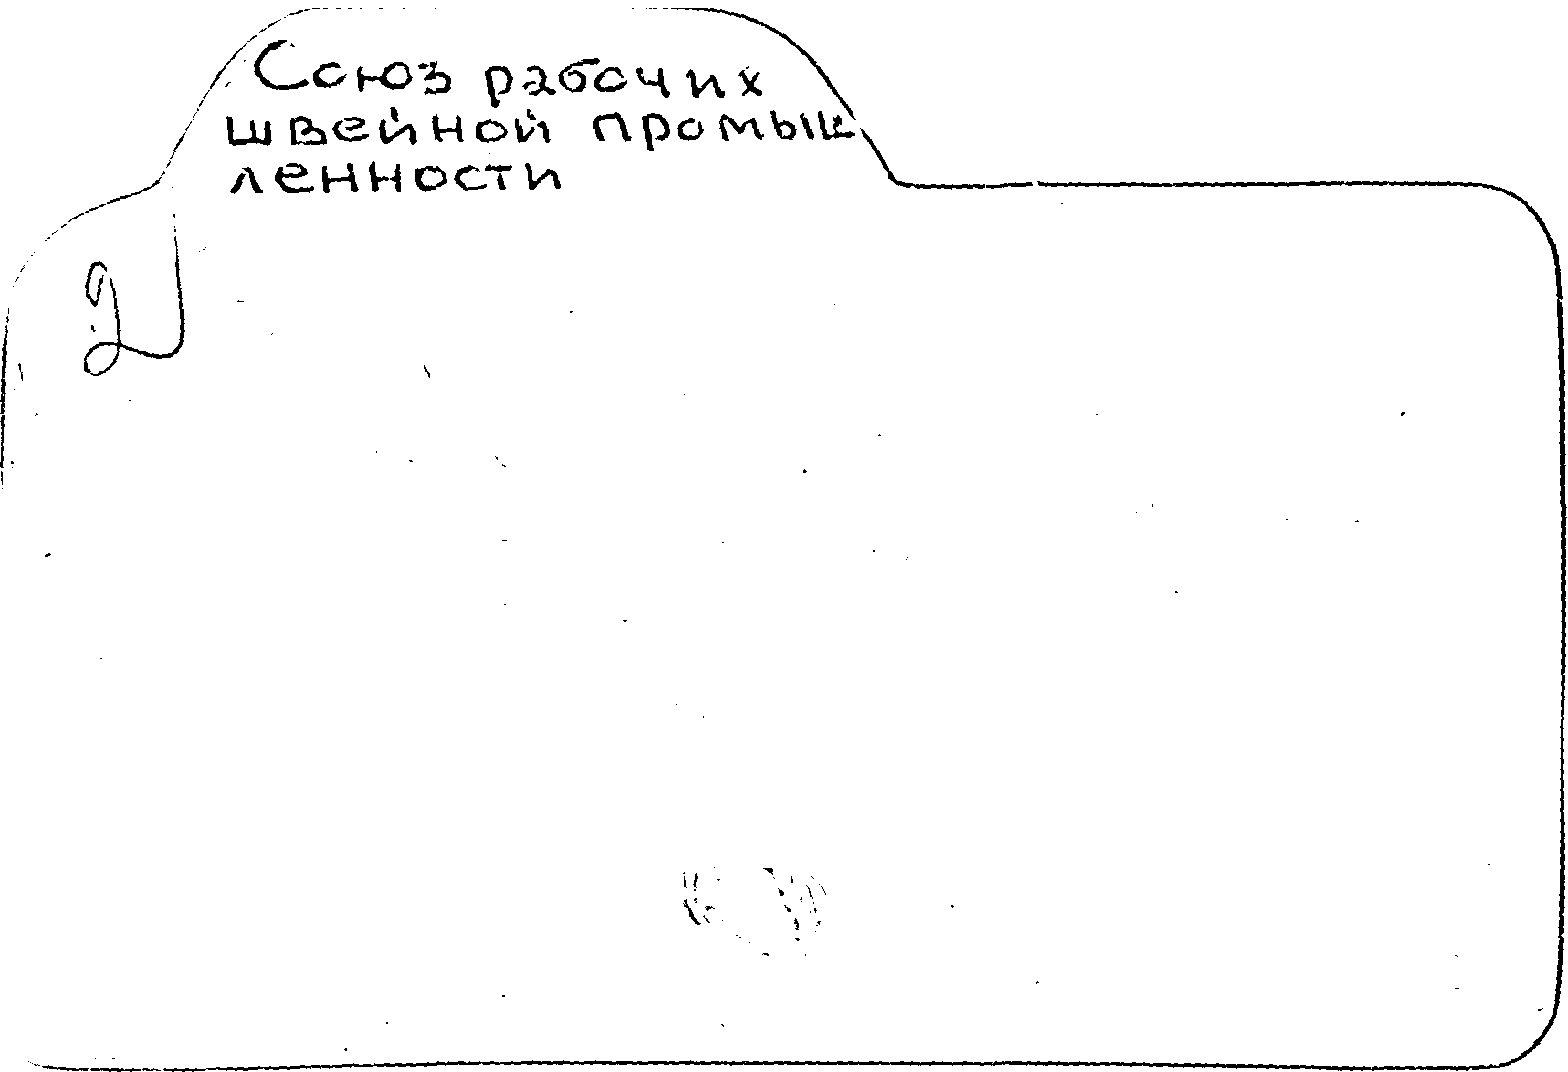 Союз рабочих
швейной промыш
ленности